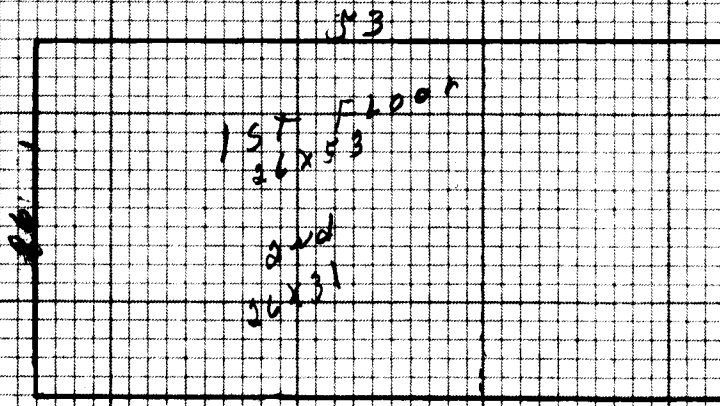 53
1ST FLOOR
26x53
26'
2Nd
26x31